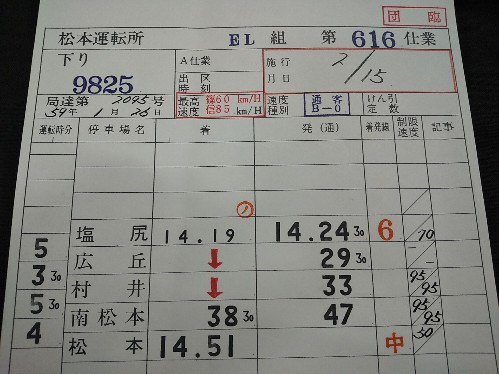 団臨
松本運転所 EL 組 第 616 仕業
下り 9825
A仕業
出区時刻
施行月日 2/15
局達第 2095号
59年 1月 26日
最高速度 篠60 km/H 信85 km/H
速度種別 通客B-0
けん引定数
運転時分 停車場名 着 発(通) 着発線 制限速度 記事
塩尻 14.19 14.24 30 6 70
5 広丘 ↓ 29 30
3 30 村井 ↓ 33 95 95
5 30 南松本 38 30 47 95 95
4 松本 14.51 中 50